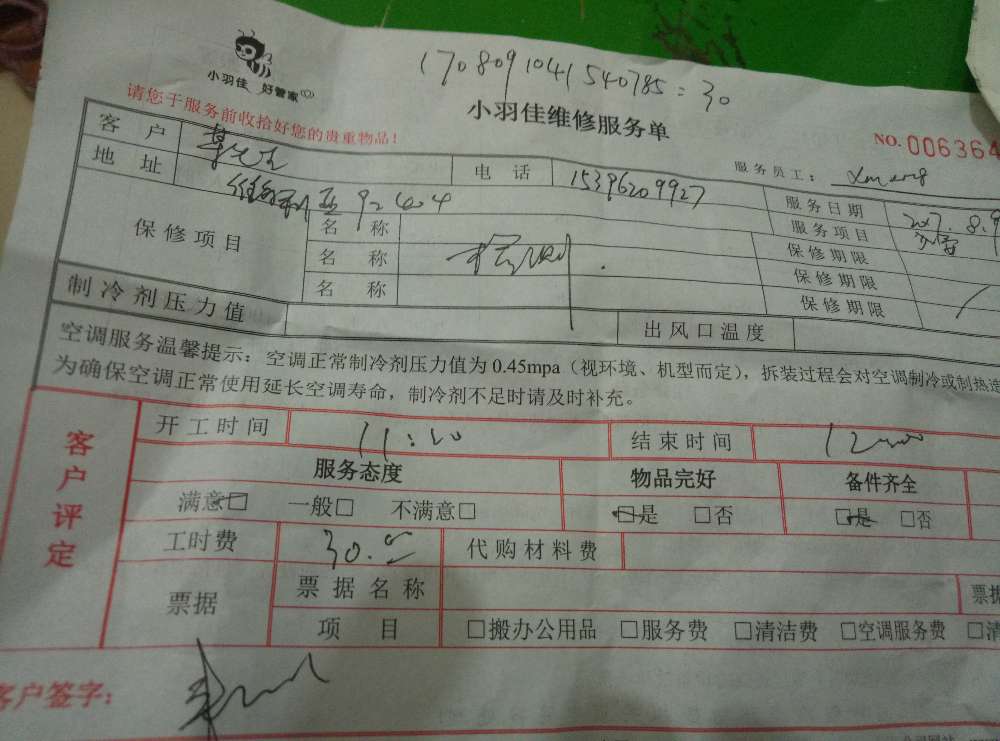 1708091041540785=30
小羽佳 好管家
小羽佳维修服务单
请您于服务前收拾好您的贵重物品!
NO.006364
服务员工:
客户 电话 15396209927 服务日期 2017.8.9
地址 服务项目
保修项目 名称 保修期限
名称 保修期限
名称 保修期限
制冷剂压力值 出风口温度
空调服务温馨提示:空调正常制冷剂压力值为0.45mpa(视环境、机型而定),拆装过程会对空调制冷或制热造
为确保空调正常使用延长空调寿命,制冷剂不足时请及时补充。
客户评定
开工时间 11:20 结束时间 12:00
服务态度 物品完好 备件齐全
满意□ 一般□ 不满意□ □是 □否 □是 □否
工时费 30.0 代购材料费
票据 票据名称 票据
项目 □搬办公用品 □服务费 □清洁费 □空调服务费 □清
客户签字: